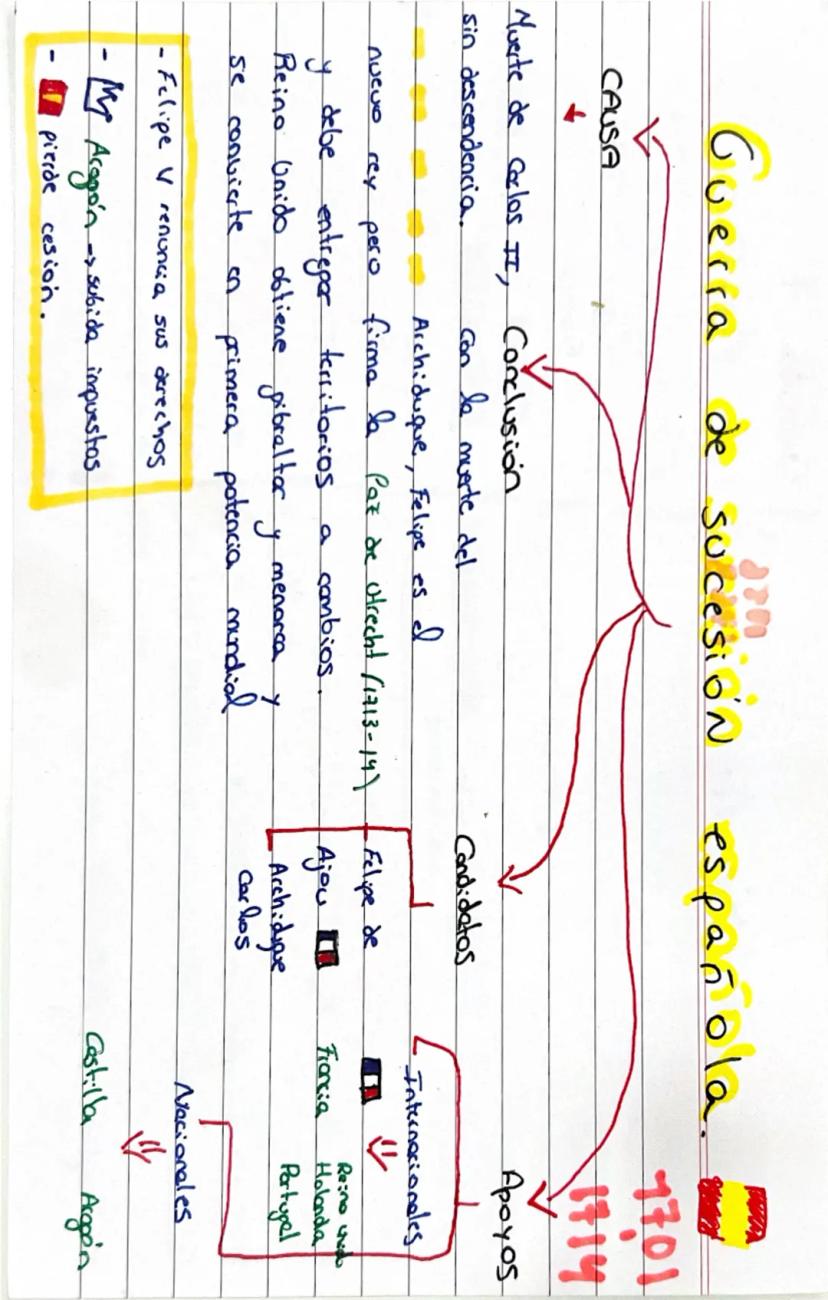 Guerra de sucesión española.
1701
1714
CAUSA
Muerte de Carlos II,
sin descendencia.
Conclusión
Con la muerte del
Archiduque, Felipe es el
nuevo rey pero firma la Paz de Utrecht (1713-14)
y debe entregar territorios a cambios.
Reino Unido obtiene gibraltar y menorca y
se convierte en primera potencia mundial
- Felipe V renuncia sus derechos
- Aragón -> subida impuestos
- pierde cesión.
Candidatos
Felipe de
Ajou
Archiduque
Carlos
Apoyos
Internacionales
Francia
Reino unido
Holanda
Portugal
Nacionales
Castilla Aragón